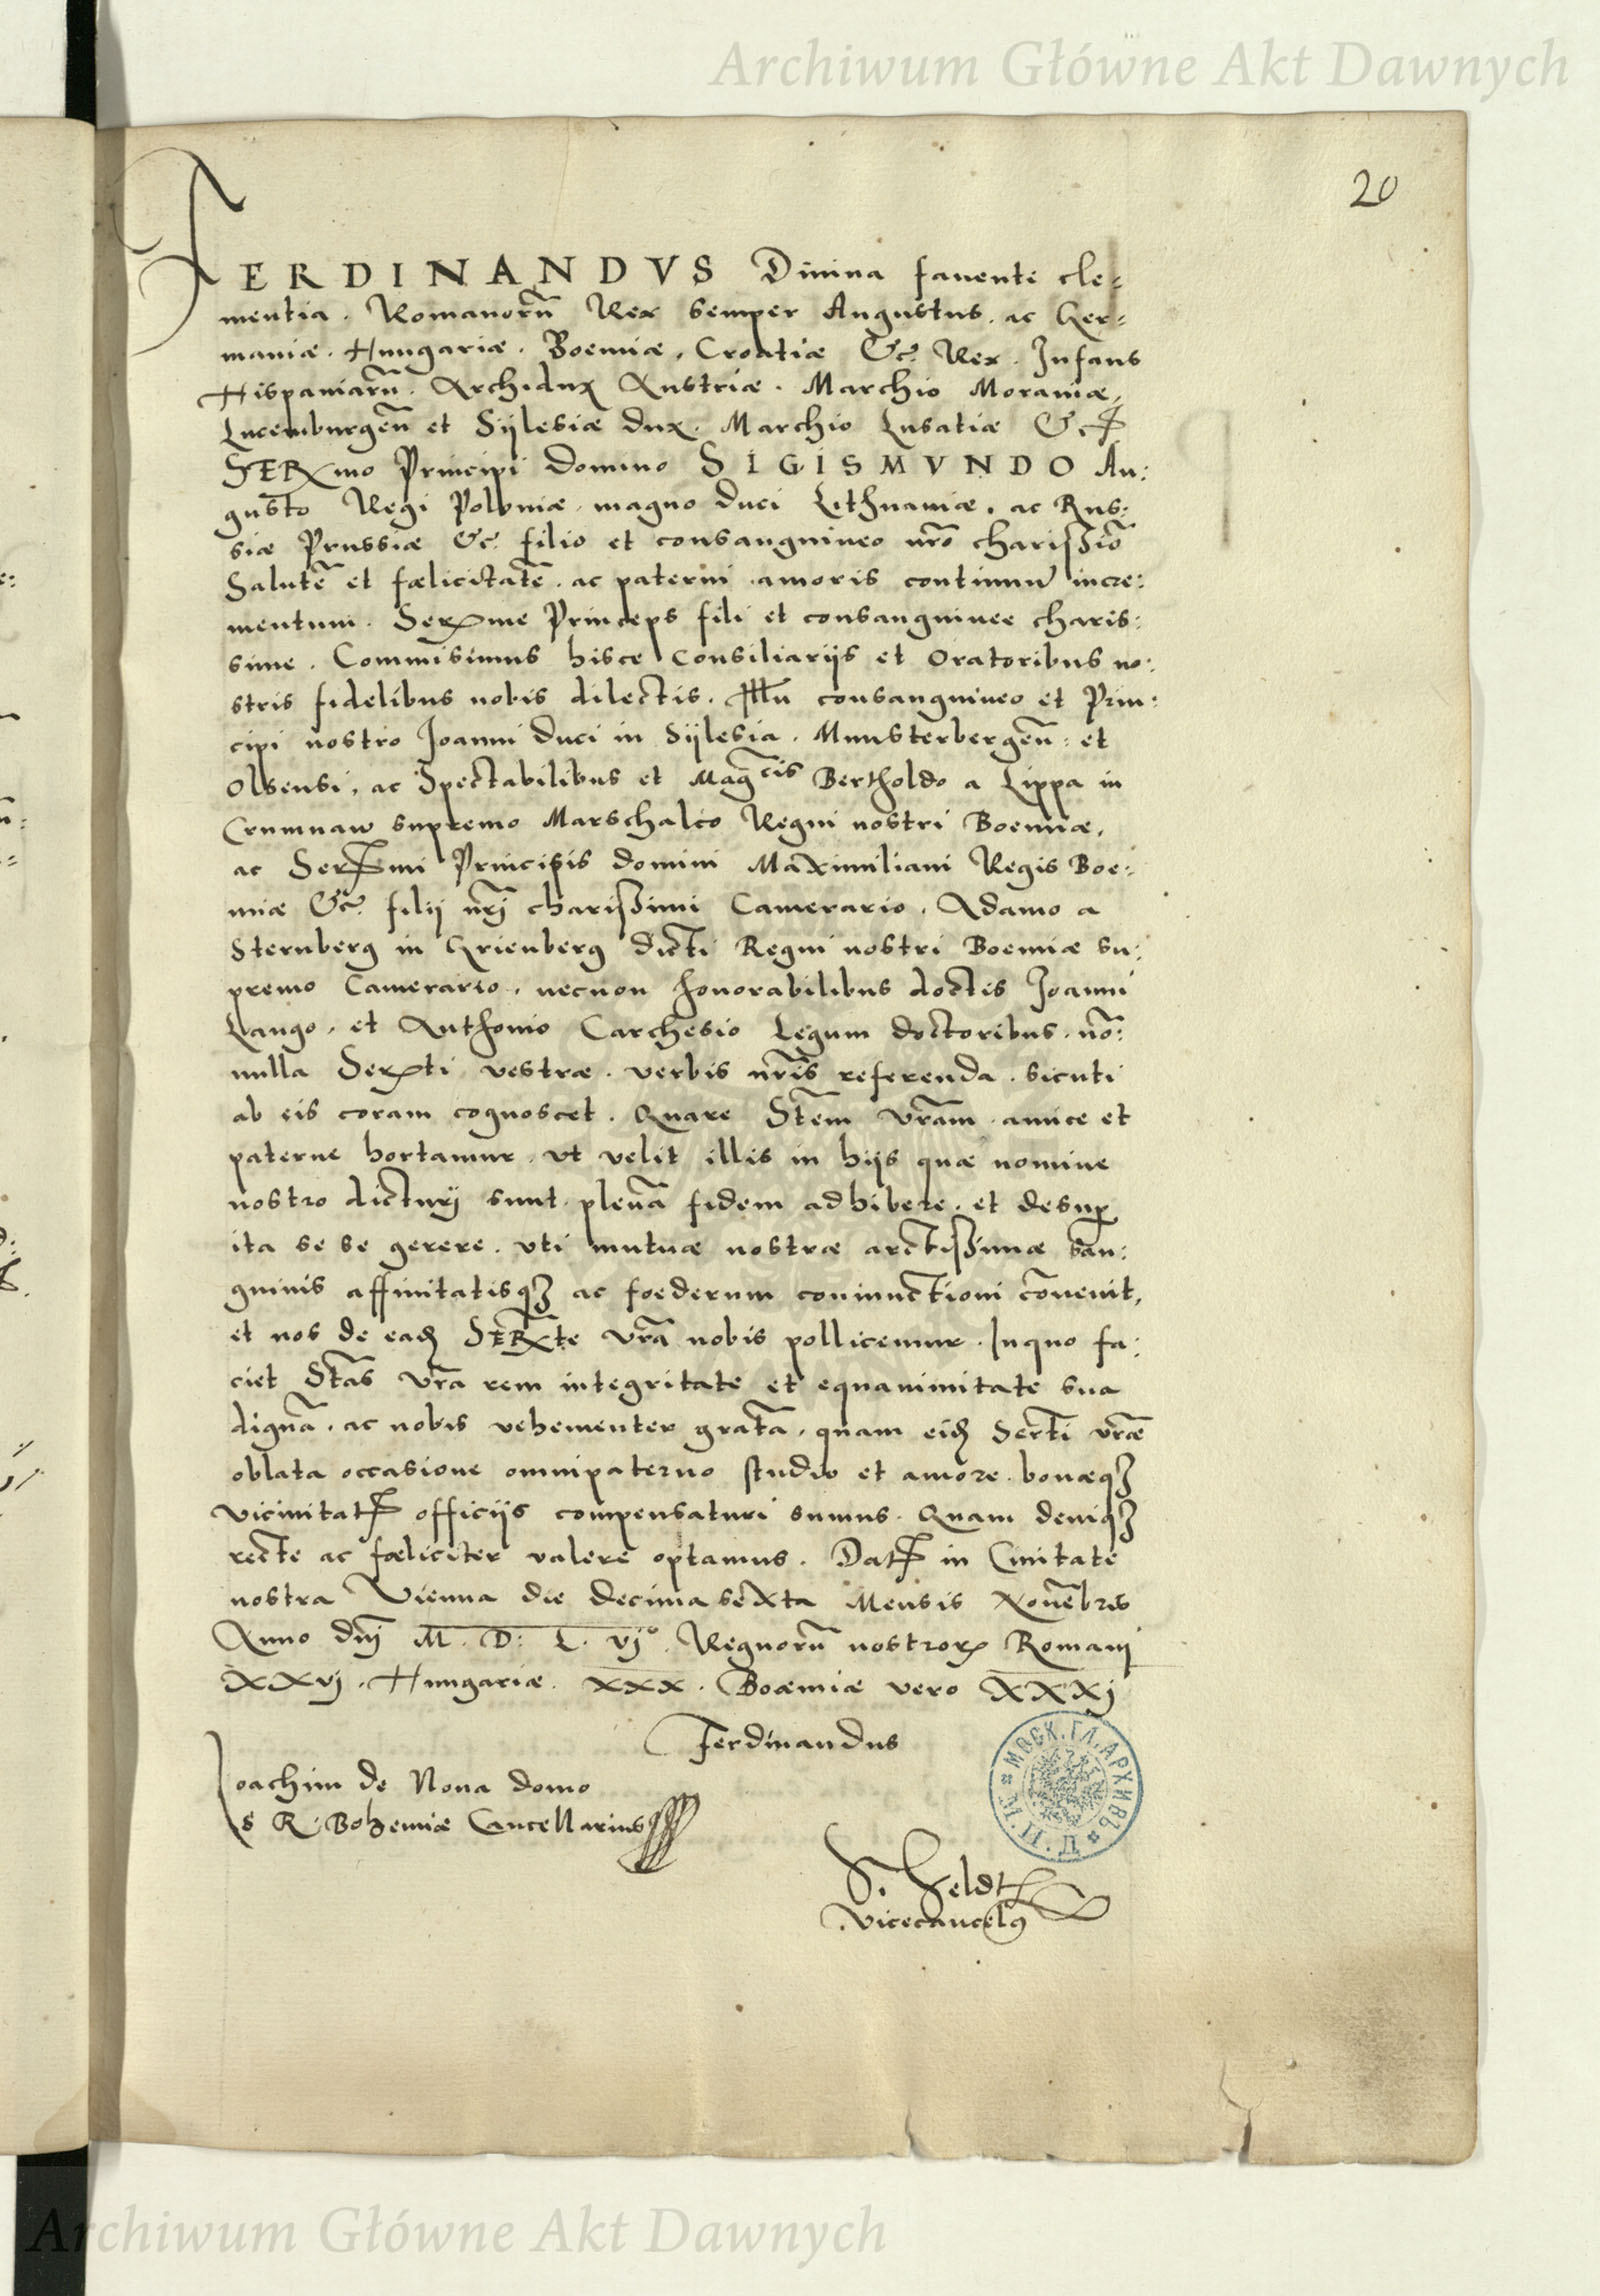 Archiwum Główne Akt Dawnych
20
FERDINANDVS Diuina fauente cle=
mentia. Romanorũ Rex semper Augustus. ac Ger=
maniæ. Hungariæ. Boemiæ, Croatiæ &c. Rex. Infans
Hispaniarũ. Archidux Austriæ. Marchio Morauiæ,
Lucemburgeñ et Sÿlesiæ dux. Marchio Lusatiæ &c
SERmo Principi domino SIGISMVNDO Au:
gusto Regi Poloniæ. magno duci Lithuaniæ. ac Rus:
siæ Prussiæ &c. filio et consanguineo nr̃o charissiõ
Salutẽ et fœlicitatẽ. ac paterni amoris continuũ incre:
mentum. Serme Princeps fili et consanguinee charis:
sime. Commisimus hisce Consiliarijs et Oratoribus no:
stris fidelibus nobis dilectis. Illũ consanguineo et Prin:
cipi nostro Joanni Duci in Sÿlesia. Munsterbergeñ: et
Olsensi, ac Spectabilibus et Mag̃cis Bertholdo a Lippa in
Crumnaw supremo Marschalco Regni nostri Boemiæ,
ac Sermi Principis domini Maximiliani Regis Boe:
miæ &c. filij nr̃j charissimi Camerario. Adamo a
Sternberg in Grienberg dicti Regni nostri Boemiæ su:
premo Camerario. necnon honorabilibus doctis Joanni
Lango. et Anthonio Carchesio Legum doctoribus. nõ:
nulla Serti vestræ. verbis nr̃is referenda. sicuti
ab eis coram cognoscet. Quare Stem̃ vr̃am. amice et
paterne hortamur. vt velit illis in hijs quæ nomine
nostro dicturi sunt. plenã fidem adhibere. et desup
ita se se gerere. vti mutuæ nostræ arctissimæ san:
guinis affinitatisqȝ ac foederum coniunctioni cõuenit,
et nos de eadẽ SERte vr̃a nobis pollicemur. In quo fa:
ciet Stas̃ vr̃a rem integritate et equanimitate sua
dignã. ac nobis vehementer gratã. quam eidẽ Serti vr̃æ
oblata occasione omnipaterno studio et amore. bonæqȝ
vicinitatis officijs compensaturi sumus. Quam deniqȝ
recte ac fœliciter valere optamus. Dat in Ciuitate
nostra Vienna die decima sexta Mensis Nouẽbris
Anno dñi M. D: L. vjº. Regnorũ nostrorꝝ Romani
XXvj. Hungariæ. XXX. Boæmiæ vero XXXj
Ferdinandus
Joachim de Noua domo
s R. Bohemiæ Cancellarius
МОСК. ГЛ. АРХИВЪ
Vicecancels
Archiwum Główne Akt Dawnych